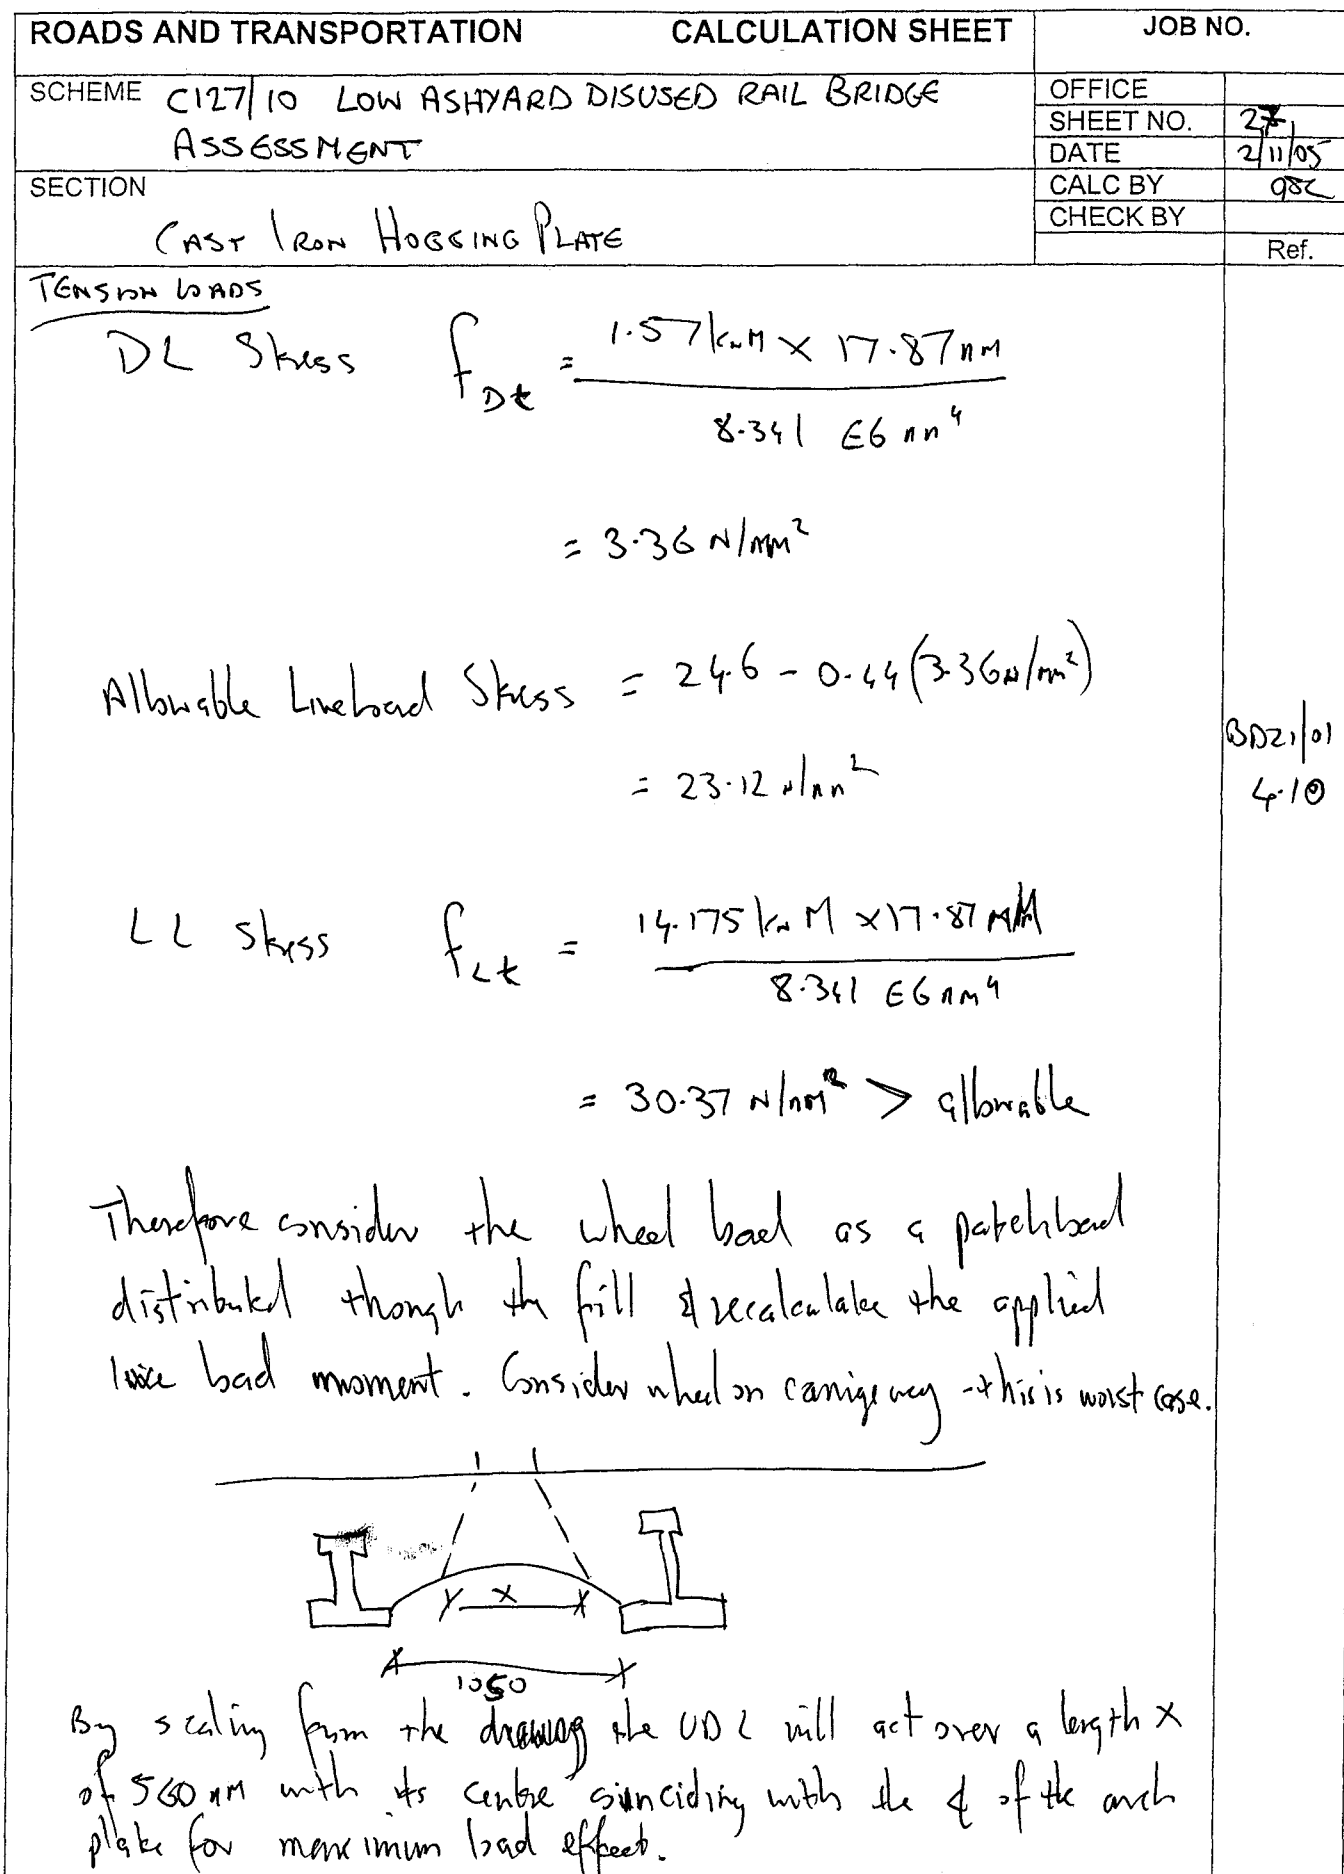 ROADS AND TRANSPORTATION CALCULATION SHEET JOB NO.
SCHEME C127/10 LOW ASHYARD DISUSED RAIL BRIDGE
ASSESSMENT
OFFICE
SHEET NO. 27
DATE 2/11/05
SECTION
CAST IRON HOGGING PLATE
CALC BY
CHECK BY
Ref.
TENSION LOADS
DL Stress f Dt = 1.57 kNM × 17.87 mm
8.341 E6 mm⁴
= 3.36 N/mm²
Allowable Liveload Stress = 24.6 - 0.44 (3.36 N/mm²)
BD21/01
= 23.12 N/mm²
4.10
LL Stress f Lt = 14.175 kNM × 17.87 mM
8.341 E6 mm⁴
= 30.37 N/mm² > allowable
Therefore consider the wheel load as a patch load
distributed though the fill & recalculate the applied
live load moment. Consider wheel on carrigeway - this is worst case.
x
1050
By scaling from the drawing the UDL will act over a length x
of 560 mm with its centre coinciding with the ℄ of the arch
plate for maximum load effect.